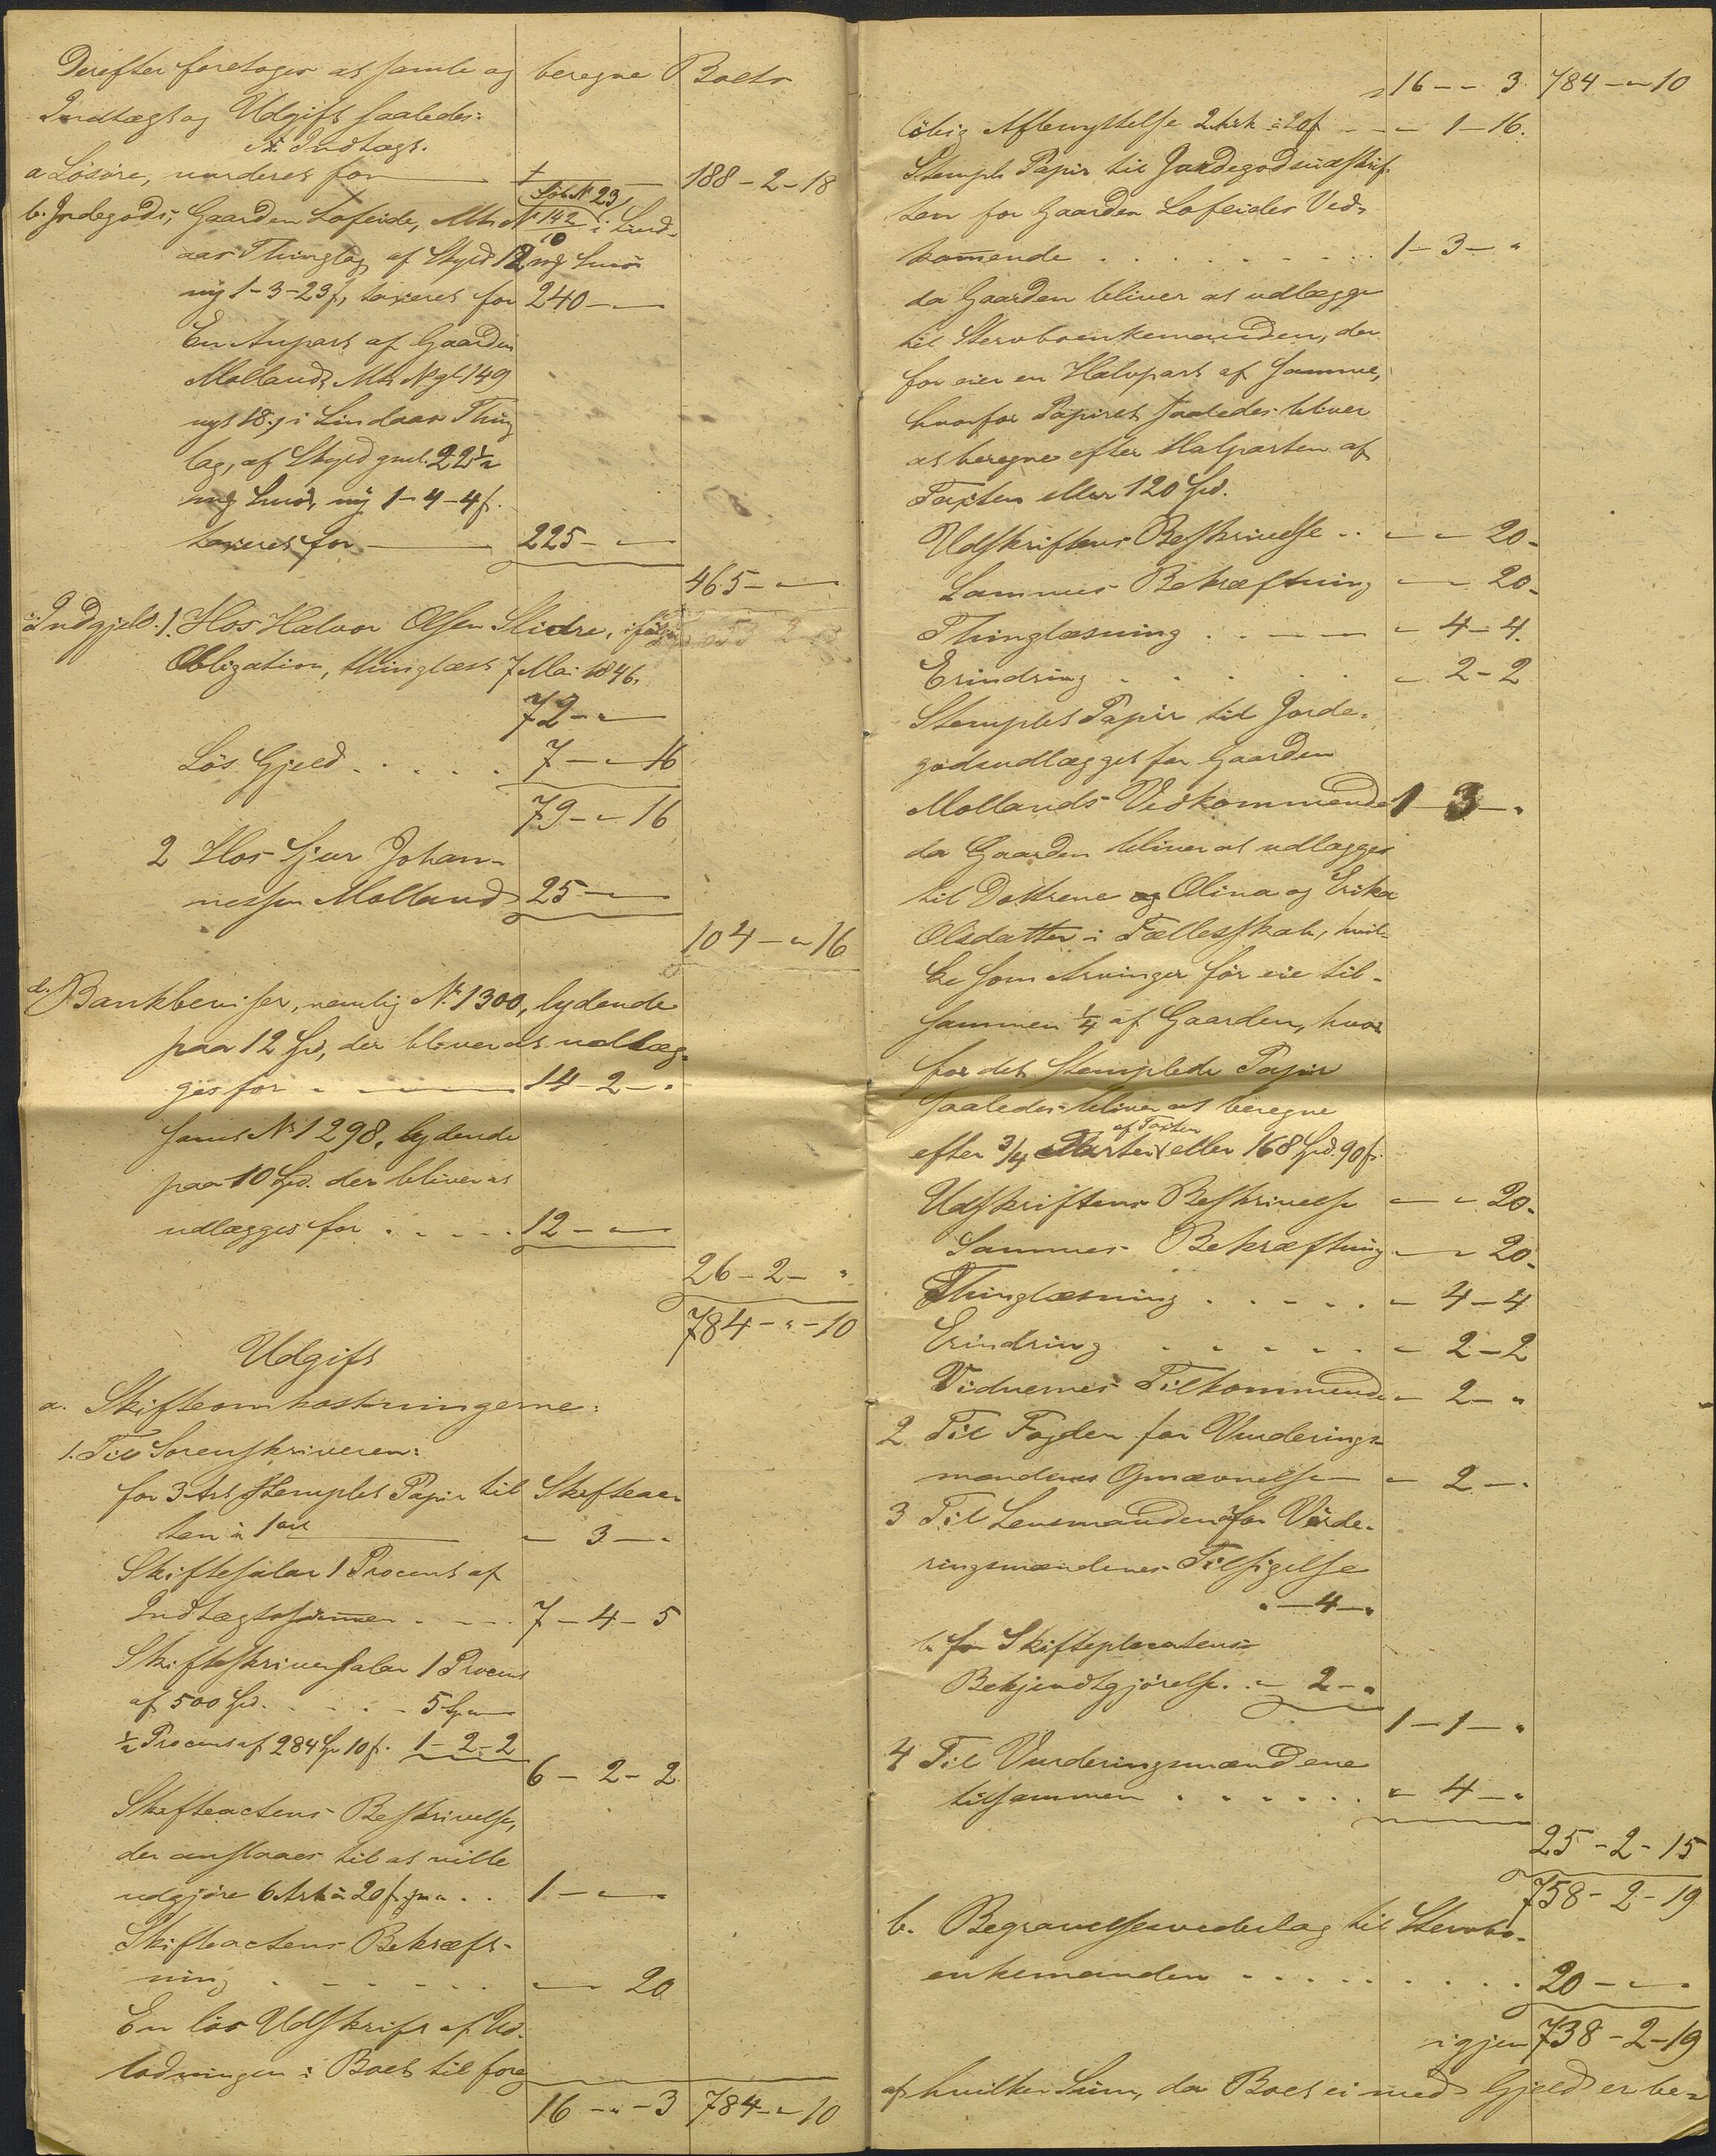 Derefter foretoges at samle og beregne Boets
Indtægt og Udgift saaledes:
A. Indtægt.
a Løsøre, vurderet for 188-2-18
b. Jordegods; Gaarden Lofeide, Mtr. N 142 i Lind-
Løb. N 23
10
aas Thinglag af Skyld 12 mg Smør
ny 1-3-23 ſ, taxeret for 240-"-"
En Anpart af Gaarden
Molland, Mtr. N gl. 149
nyt 18, i Lindaas Thing
lag, af Skyld gml. 22½
mg Smør, ny 1-4-4 ſ.
taxeret for 225-"-"
465-"-"
Indgjeld. 1. Hos Halvor Olsen Slidre, ifølge
Obligation, thinglæst 7 Mai 1846.
72-"-"
Løs Gjeld 7-"-16
79-"-16
2 Hos Sjur Johan-
nessen Molland 25-"-"
104-"-16
d. Bankbeviser, nemlig N. 1300, lydende
paa 12 Spd, der bliver at udlæg-
ges for 14-2-"
samt N. 1298, lydende
paa 10 Spd. der bliver at
udlægges for 12-"-"
26-2-"
784-"-10
Udgift
a. Skifteomkostningerne:
1. Til Sorenskriveren:
for 3 Ark stemplet Papir til Skifteac-
ten à 1 ort "-3-"
Skiftesalær 1 Procent af
Indtægtssummen 7-4-5
Skifteskriversalær 1 Procent
af 500 Spd. 5 Sp "-"
½ Procent af 284 Sp 10 ſ. 1-2-2
6-2-2
Skifteactens Beskrivelse,
der anslaaes til at ville
udgjøre 6 Ark à 20 ſ 1-"-"
Skifteactens Bekræft-
ning "-"-20
En løs Udskrift af Ud-
lodningen i Boet til foreg
16-"-3 784-"-10
16-"-3 784-"-10
løbig Afbenyttelse 2 Ark à 20 ſ "-1-16.
Stempl. Papir til Jordegodsudskrif-
ten for Gaarden Lofeides Ved-
kommende 1-3-"
da Gaarden bliver at udlægge
til Stervboenkemanden, der
før eier en Halvpart af samme,
hvorfor Papiret saaledes bliver
at beregne efter Halparten af
Taxten eller 120 Spd.
Udskriftens Beskrivelse "-"-20
Sammes Bekræftning "-"-20
Thinglæsning "-4-4
Erindring "-2-2
Stemplet Papir til Jorde-
godsudlægget for Gaarden
Mollands Vedkommende 1-3-"
da Gaarden bliver at udlægges
til Døttrene og Olina og Erika
Olsdatter i Fællesskab, hvil-
ke som Arvinger før eie til-
sammen ¼ af Gaarden, hvor
for det stemplede Papir
saaledes bliver at beregne
af Taxten
efter ¾ Parter eller 168 Spd. 90 ſ.
Udskriftens Beskrivelse "-"-20
Sammes Bekræftning "-"-20
Thinglæsning "-4-4
Erindring "-2-2
Vidnernes Tilkommende "-2-"
2. Til Fogden for Vurderings-
mændenes Opnævnelse "-2-"
3 Til Lensmanden a for Vurde-
ringsmændenes Tilsigelse
"-4-"
b. for Skifteplacatens
Bekjendtgjørelse "-2-"
1-1-"
4 Til Vurderingsmændene
tilsammen "-4-"
25-2-15
758-2-19
b. Begravelsesvederlag til Stervbo-
enkemanden 20-"-"
igjen 738-2-19
af hvilken Sum, da Boet ei med Gjeld er be-